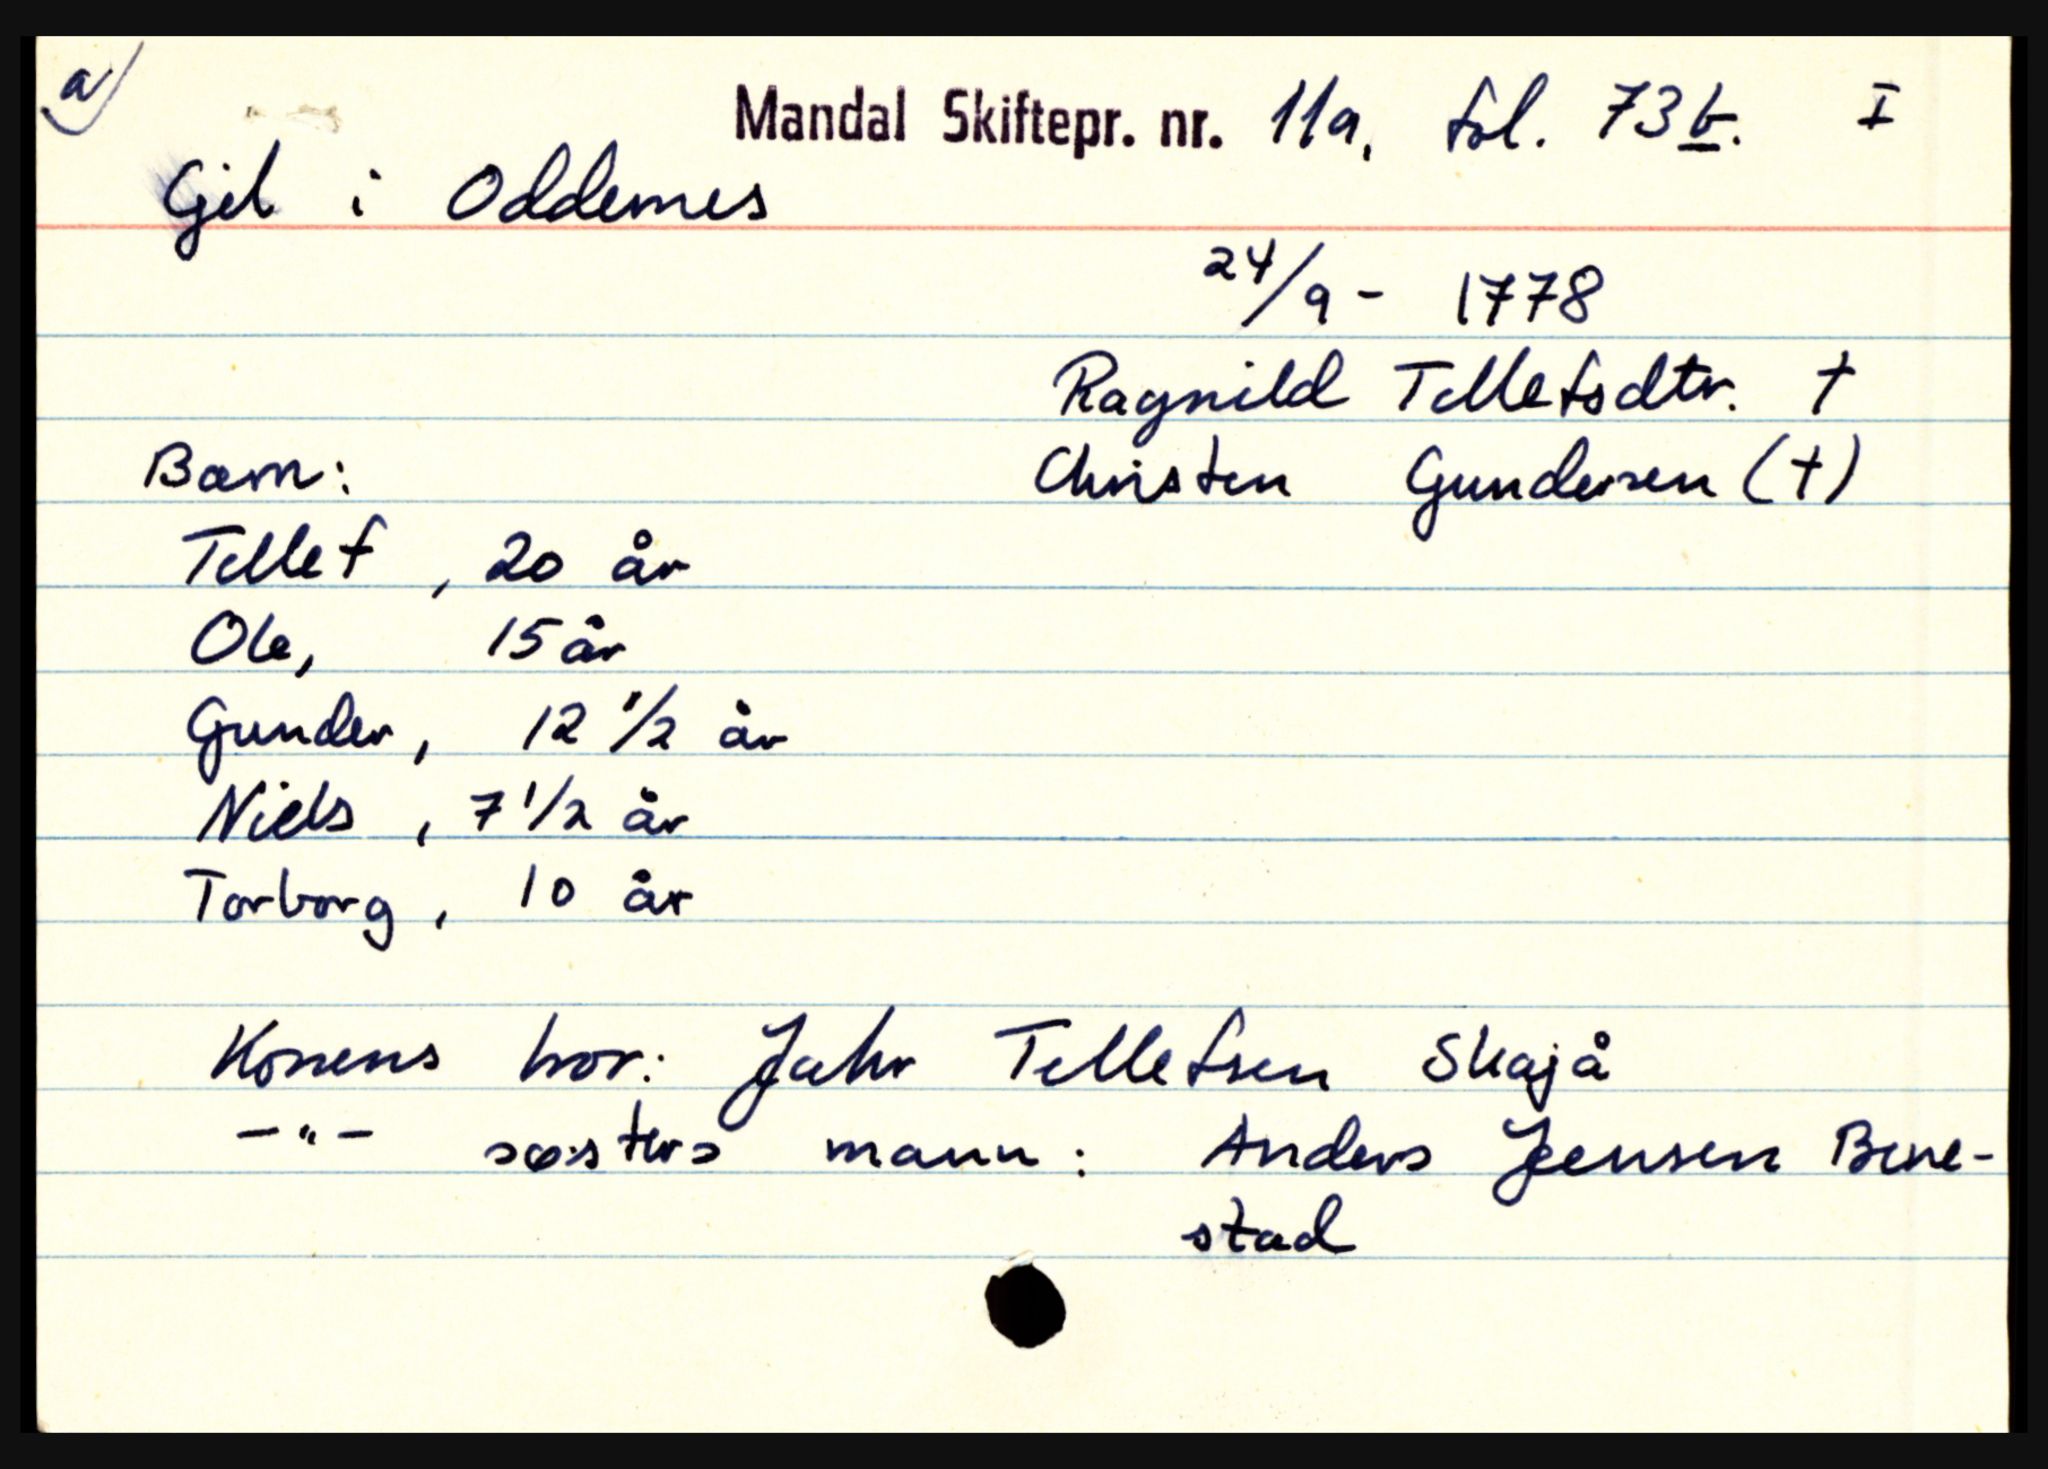 a)
Mandal Skiftepr. nr. 11a, fol. 73b. I
Gil i Oddernes
24/9 - 1778
Ragnild Tellefsdtr. †
Barn: Christen Gundersen (†)
Tellef, 20 år
Ole, 15 år
Gunder, 12 1/2 år
Niels, 7 1/2 år
Torborg, 10 år
Konens bror: Jahr Tellefsen Skajå
-"- søsters mann: Anders Jensen Bene-
stad